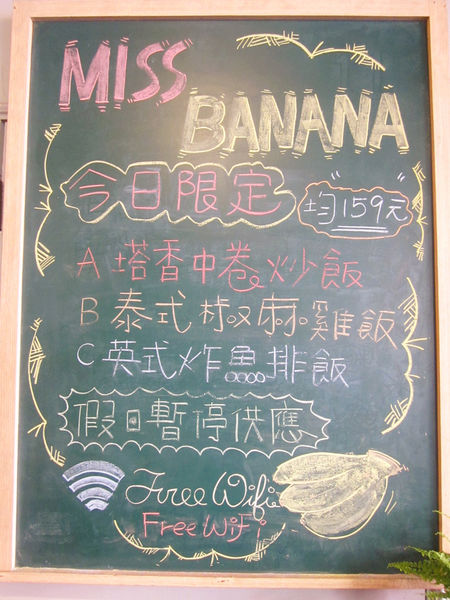 MISS
BANANA
今日限定
均159元
A 塔香中卷炒飯
B 泰式椒麻雞飯
C 英式炸魚排飯
假日暫停供應
Free Wifi
Free WiFi